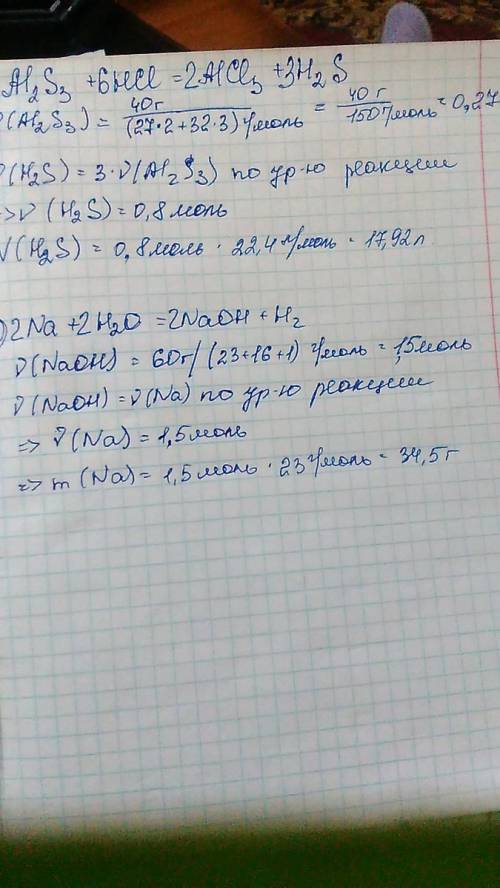 Al₂S₃ + 6HCl = 2AlCl₃ + 3H₂S
ν(Al₂S₃) = 40г / (27·2+32·3) г/моль = 40 г / 150 г/моль = 0,27
ν(H₂S) = 3·ν(Al₂S₃) по ур-ю реакции
=> ν (H₂S) = 0,8 моль
V(H₂S) = 0,8 моль · 22,4 л/моль = 17,92 л
) 2Na + 2H₂O = 2NaOH + H₂
ν(NaOH) = 60г/ (23+16+1) г/моль = 1,5 моль
ν(NaOH) = ν(Na) по ур-ю реакции
=> ν(Na) = 1,5 моль
=> m (Na) = 1,5 моль · 23 г/моль = 34,5 г